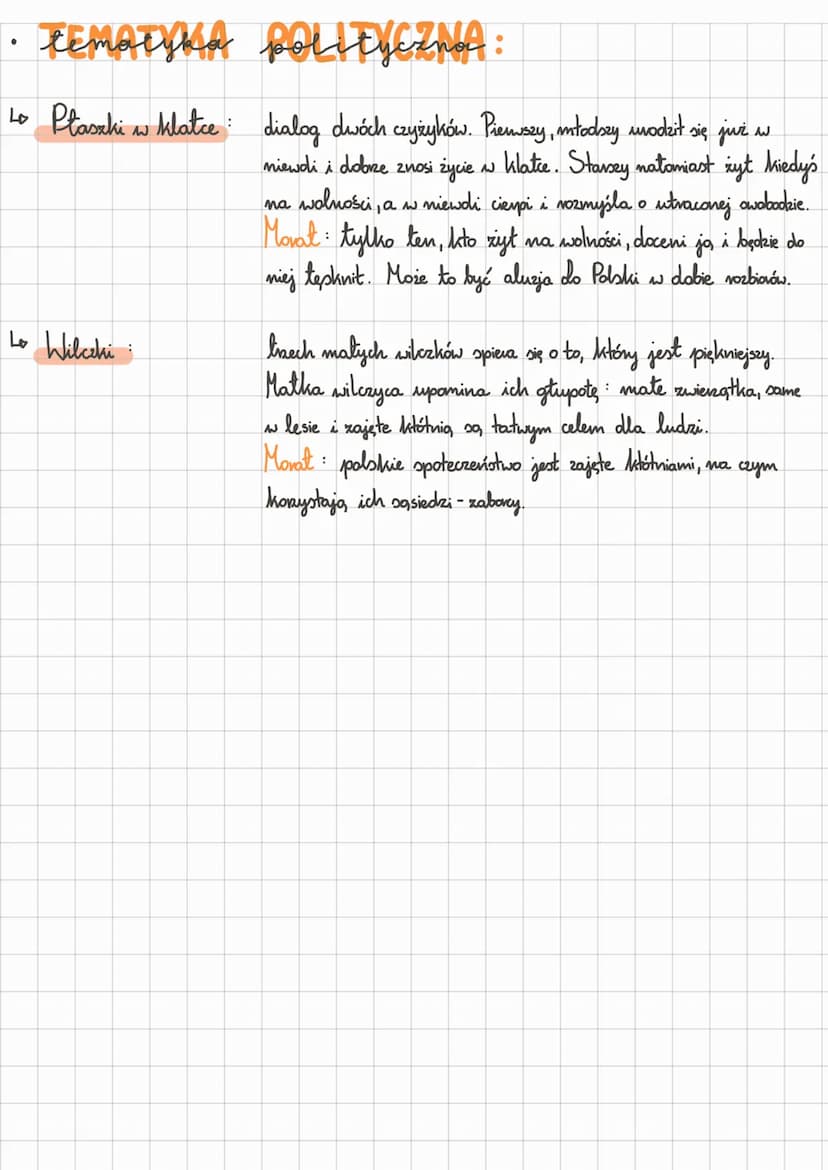 • TEMATYKA POLITYCZNA:
↳ Ptaszki w klatce: dialog dwóch czyżyków. Pierwszy, młodszy urodził się już w
niewoli i dobrze znosi życie w klatce. Starszy natomiast żył kiedyś
na wolności, a w niewoli cierpi i rozmyśla o utraconej swobodzie.
Morał: tylko ten, kto żył na wolności, doceni ją i będzie do
niej tęsknił. Może to być aluzja do Polski w dobie rozbiorów.
↳ Wilczki: trzech małych wilczków spiera się o to, który jest piękniejszy.
Matka wilczyca upomina ich głupotę: małe zwierzątka, same
w lesie i zajęte kłótnią są łatwym celem dla ludzi.
Morał: polskie społeczeństwo jest zajęte kłótniami, na czym
korzystają ich sąsiedzi - zaborcy.